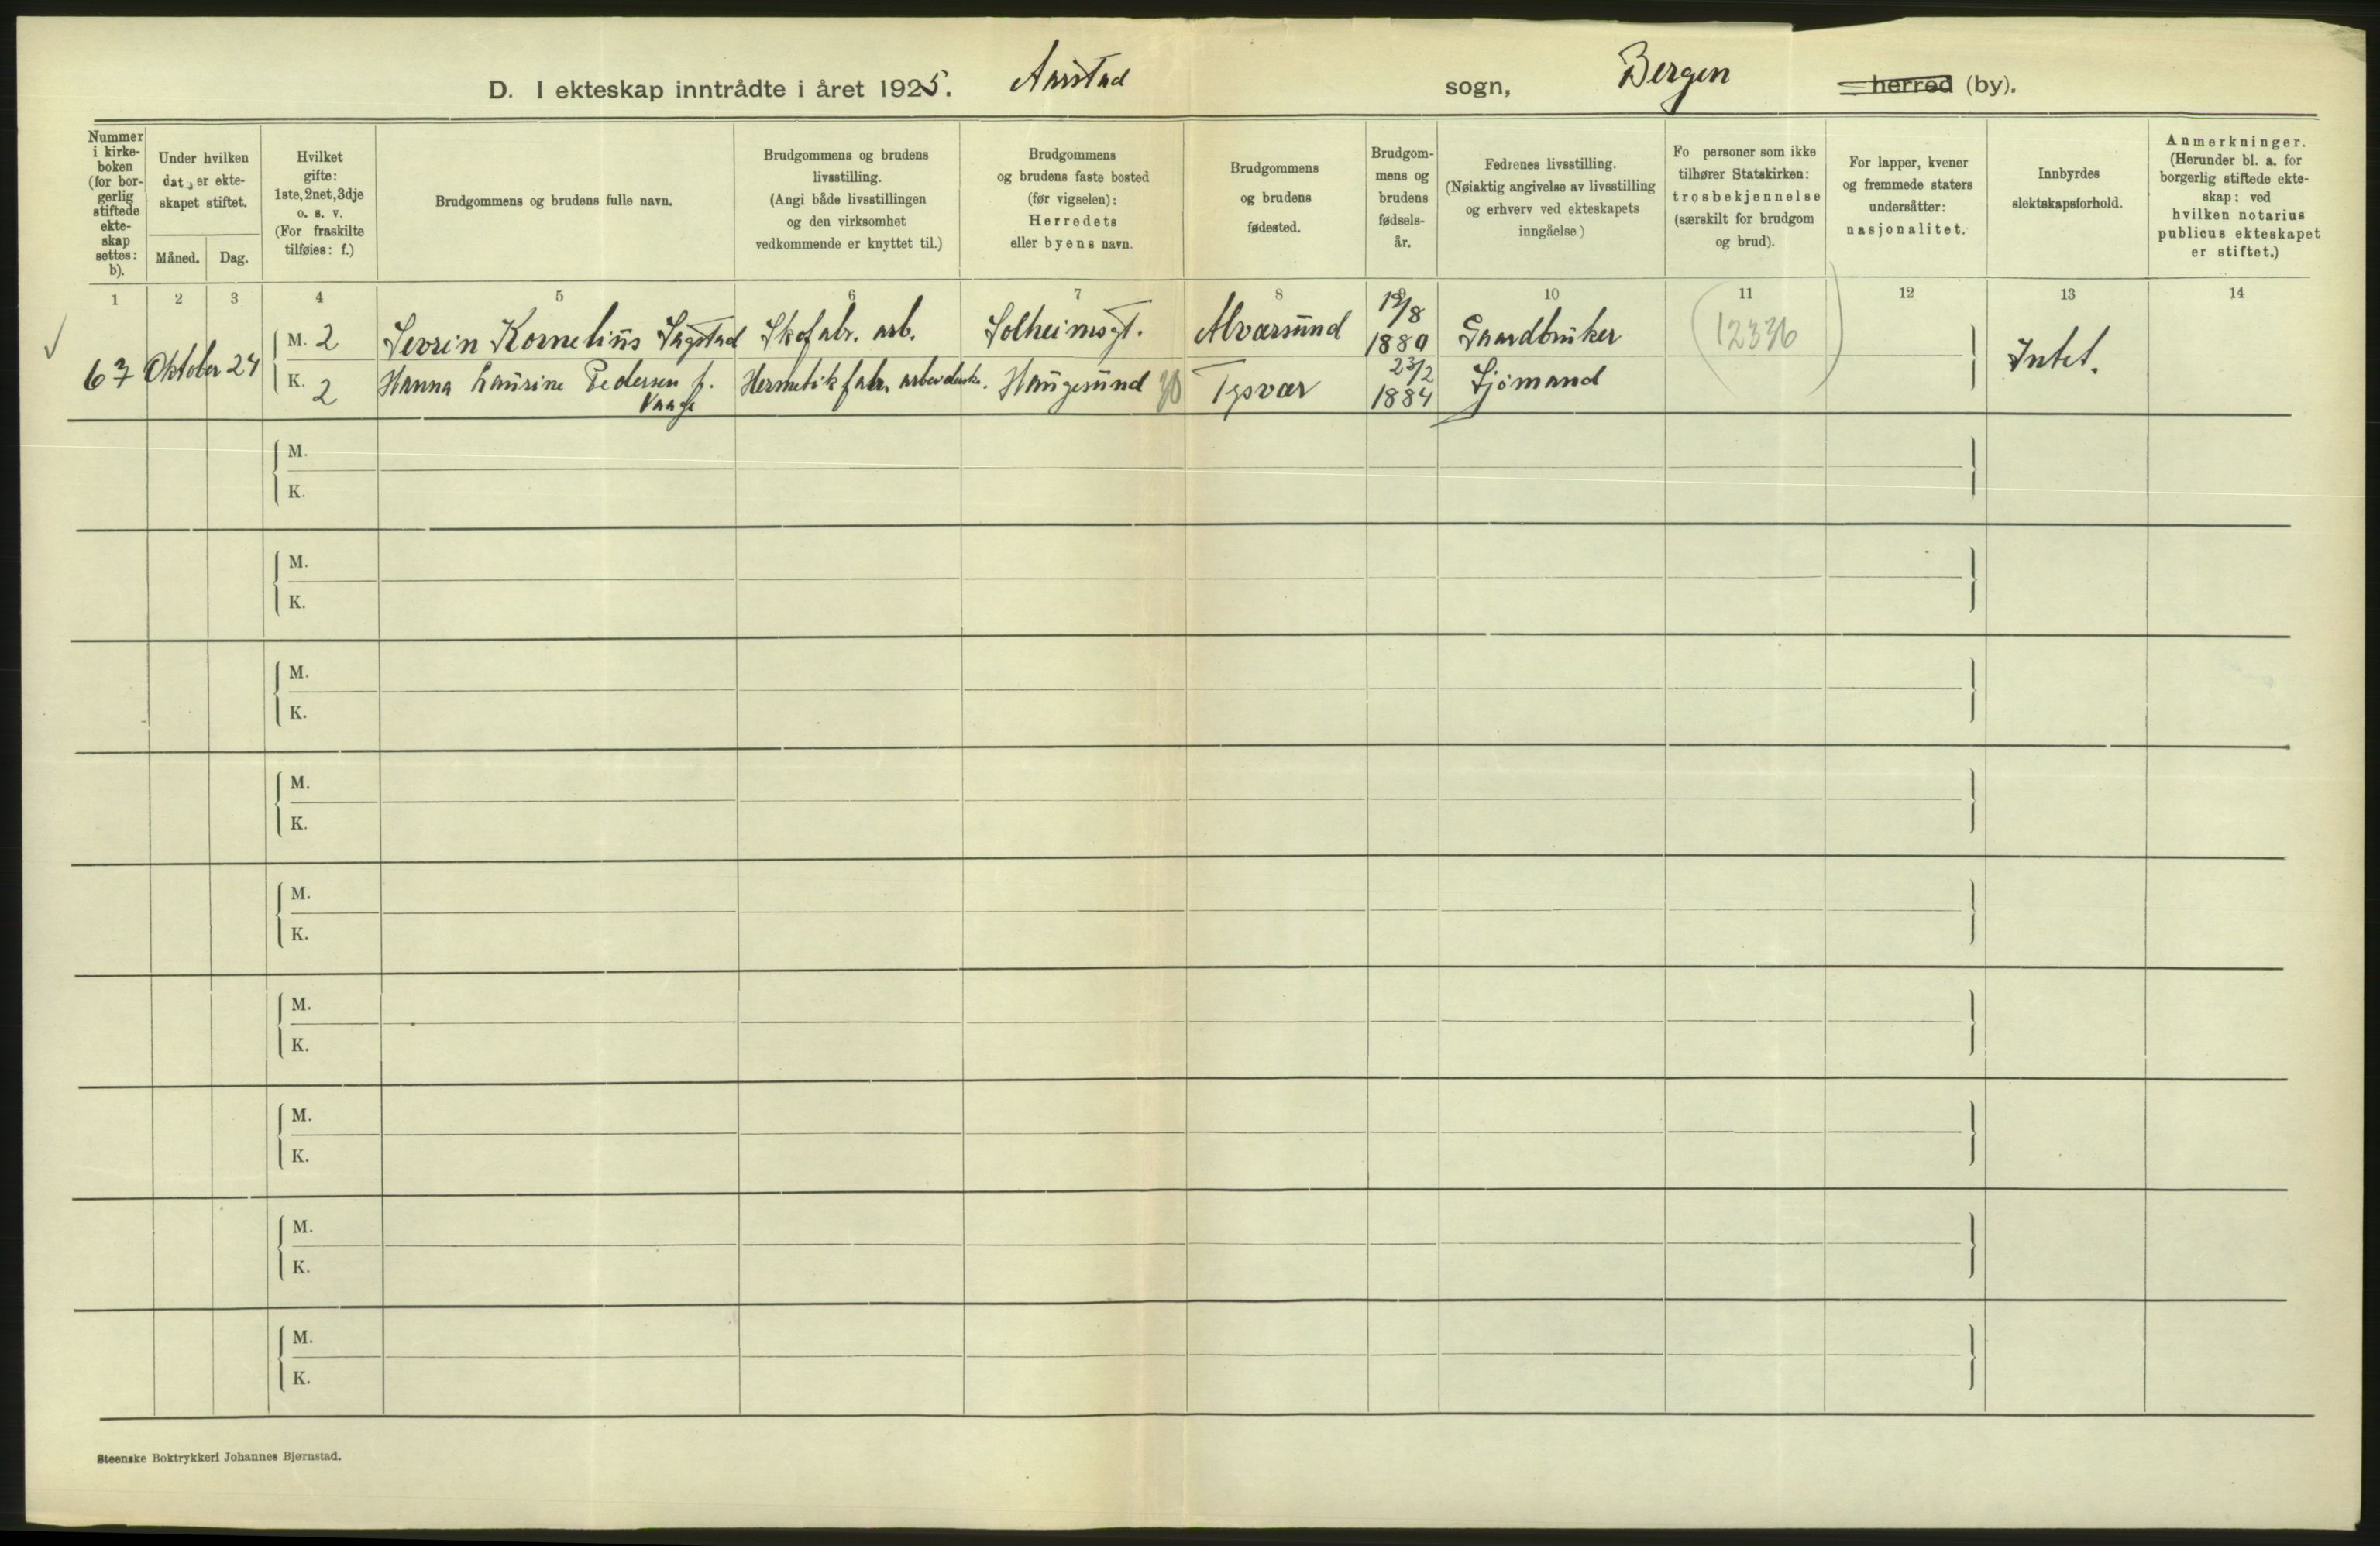 D. I ekteskap inntrådte i året 1925. Aarstad sogn, Bergen herred (by).
Nummer
i kirke-
boken
(for bor-
gerlig
stiftede
ekte-
skap
settes:
b).
Under hvilken
dato er ekte-
skapet stiftet.
Måned. Dag.
Hvilket
gifte:
1ste, 2net, 3dje
o. s. v.
(For fraskilte
tilføies: f.)
Brudgommens og brudens fulle navn.
Brudgommens og brudens
livsstilling.
(Angi både livsstillingen
og den virksomhet
vedkommende er knyttet til.)
Brudgommens
og brudens faste bosted
(før vigselen):
Herredets
eller byens navn.
Brudgommens
og brudens
fødested.
Brudgom-
mens og
brudens
fødsels-
år.
Fedrenes livsstilling.
(Nøiaktig angivelse av livsstilling
og erhverv ved ekteskapets
inngåelse.)
Fo personer som ikke
tilhører Statskirken:
trosbekjennelse
(særskilt for brudgom
og brud).
For lapper, kvener
og fremmede staters
undersåtter:
nasjonalitet.
Innbyrdes
slektskapsforhold.
Anmerkninger.
(Herunder bl. a. for
borgerlig stiftede ekte-
skap: ved
hvilken notarius
publicus ekteskapet
er stiftet.)
1 2 3 4 5 6 7 8 9 10 11 12 13 14
67 Oktober 24
M. 2 Sevrin Kornelius Sagstad Skofabr. arb. Solheimsgt. Alværsund 19/8 1880 Gaardbruker (12336) Intet.
K. 2 Hanna Laurine Pedersen f. Hermetikfabr. arbeiderske. Haugesund Tysvær 23/2 1884 Sjømand
Vaage
M.
K.
M.
K.
M.
K.
M.
K.
M.
K.
M.
K.
M.
K.
M.
K.
M.
K.
Steenske Boktrykkeri Johannes Bjørnstad.